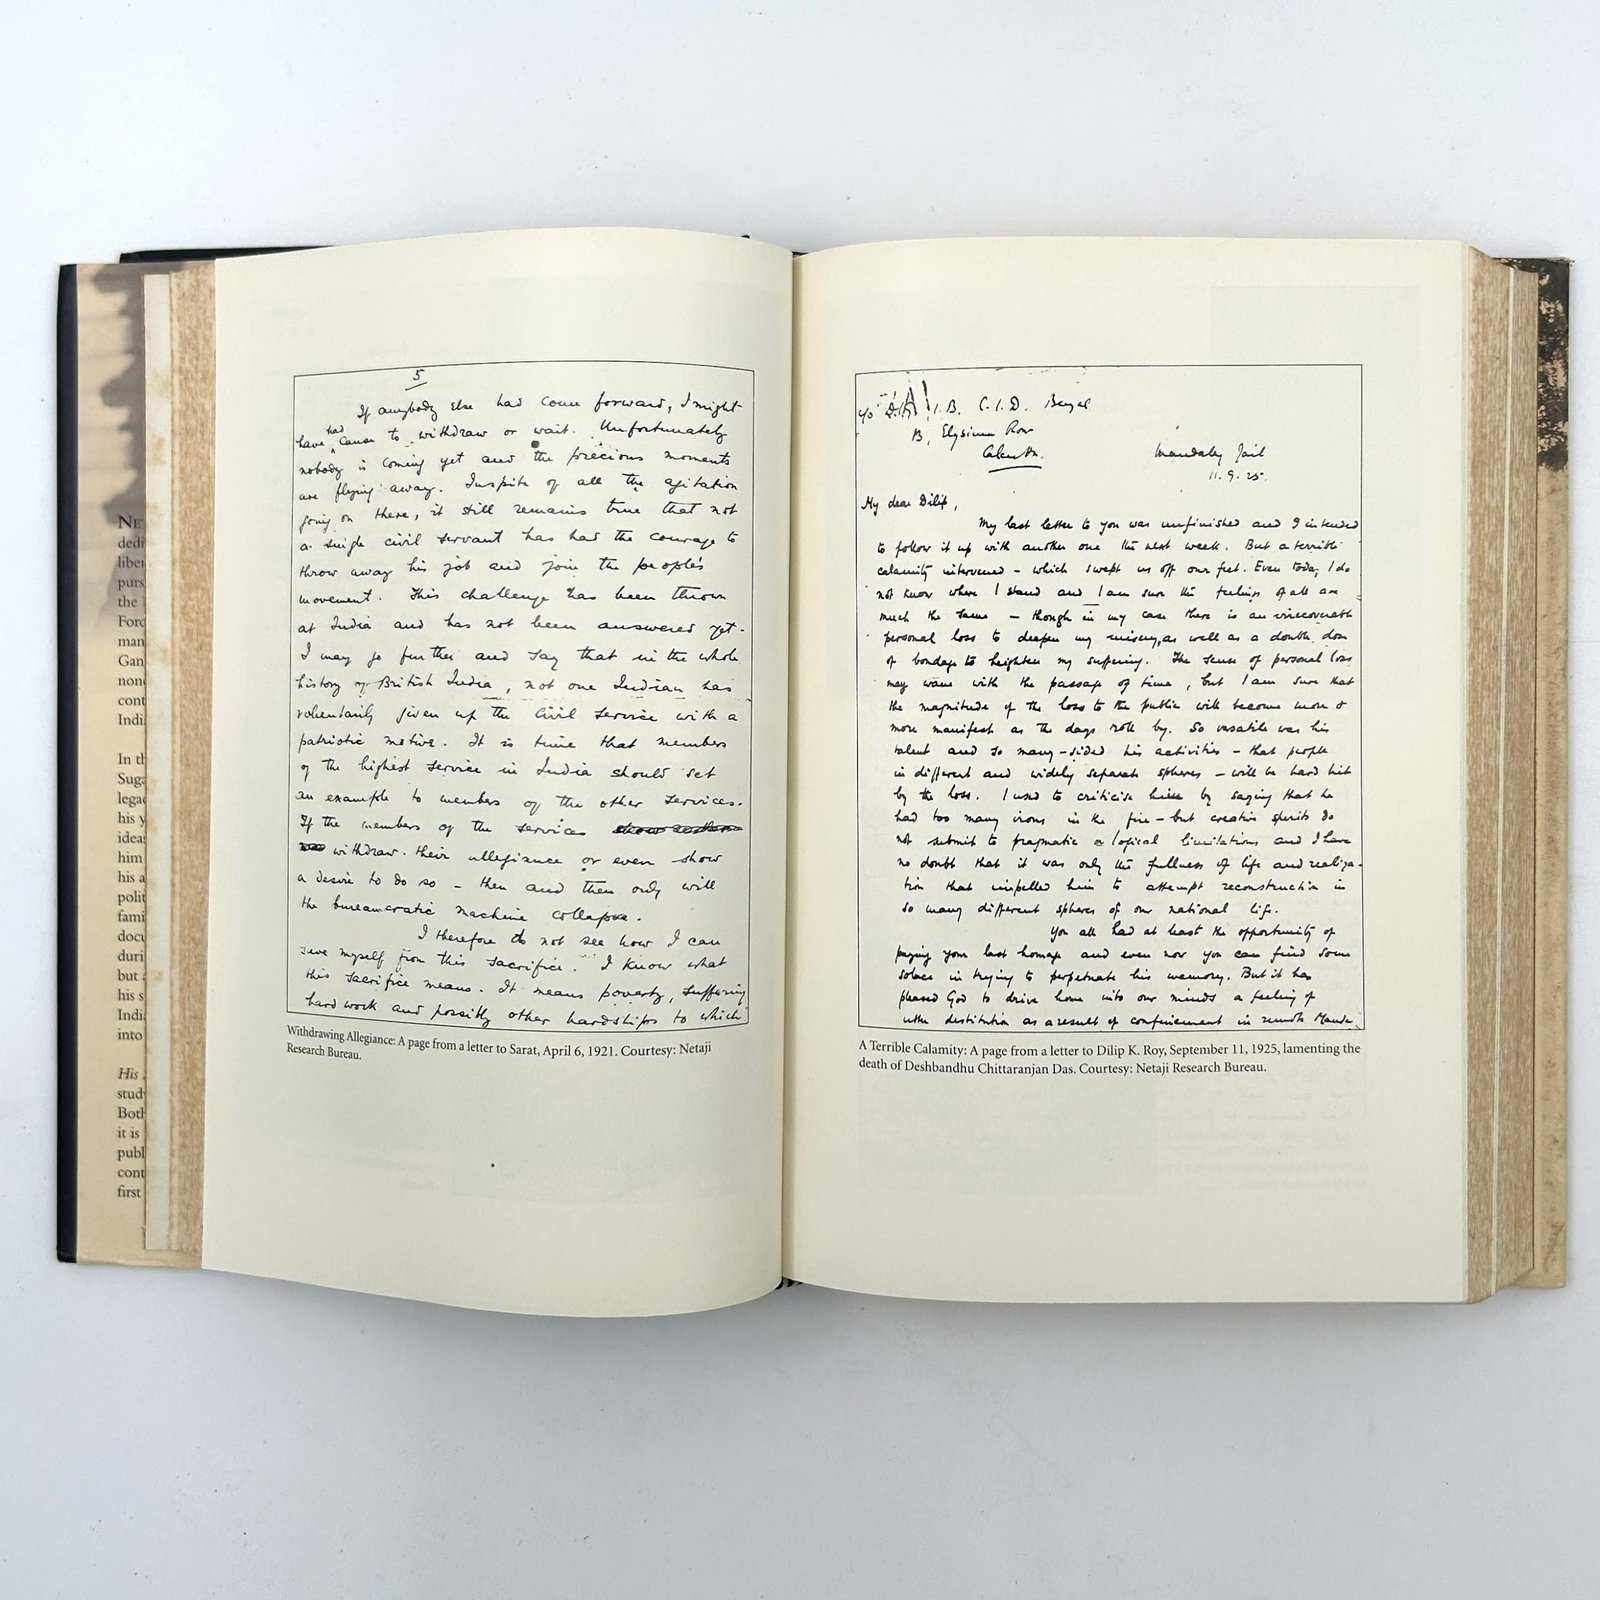 NE
dedi
liber
purs
the
Ford
man
Gan
none
cont
Indi
In th
Suga
lega
his y
ideas
him
his a
polit
fami
docu
duri
but
his s
Indi
into
His
stud
Both
it is
publ
cont
first
5
If anybody else had come forward, I might
have had cause to withdraw or wait. Unfortunately
nobody is coming yet and the precious moments
are flying away. Inspite of all the agitation
going on there, it still remains true that not
a single civil servant has had the courage to
throw away his job and join the people's
movement. This challenge has been thrown
at India and has not been answered yet.
I may go further and say that in the whole
history of British India, not one Indian has
voluntarily given up the Civil Service with a
patriotic motive. It is time that members
of the highest service in India should set
an example to members of the other services.
If the members of the services
withdraw their allegiance or even show
a desire to do so - then and then only will
the bureaucratic machine collapse.
I therefore do not see how I can
save myself from this sacrifice. I know what
this sacrifice means. It means poverty, suffering
hard work and possibly other hardships to which
Withdrawing Allegiance: A page from a letter to Sarat, April 6, 1921. Courtesy: Netaji
Research Bureau.
c/o D.I.G., I.B. C.I.D. Bengal
13, Elysium Row
Calcutta.
Mandalay Jail
11.9.25.
My dear Dilip,
My last letter to you was unfinished and I intended
to follow it up with another one the next week. But a terrible
calamity intervened - which swept us off our feet. Even today I do
not know where I stand and I am sure the feelings of all are
much the same - though in my case there is an irrecoverable
personal loss to deepen my misery, as well as a double dose
of bondage to heighten my suffering. The sense of personal loss
may wane with the passage of time, but I am sure that
the magnitude of the loss to the public will become more &
more manifest as the days roll by. So versatile was his
talent and so many-sided his activities - that people
in different and widely separate spheres - will be hard hit
by the loss. I used to criticise him by saying that he
had too many irons in the fire - but creative spirits do
not submit to pragmatic or logical limitations and I have
no doubt that it was only the fullness of life and realiza-
tion that impelled him to attempt reconstruction in
so many different spheres of our national life.
You all had at least the opportunity of
paying your last homage and even now you can find some
solace in trying to perpetuate his memory. But it has
pleased God to drive home into our minds a feeling of
utter destitution as a result of confinement in remote Manda-
A Terrible Calamity: A page from a letter to Dilip K. Roy, September 11, 1925, lamenting the
death of Deshbandhu Chittaranjan Das. Courtesy: Netaji Research Bureau.